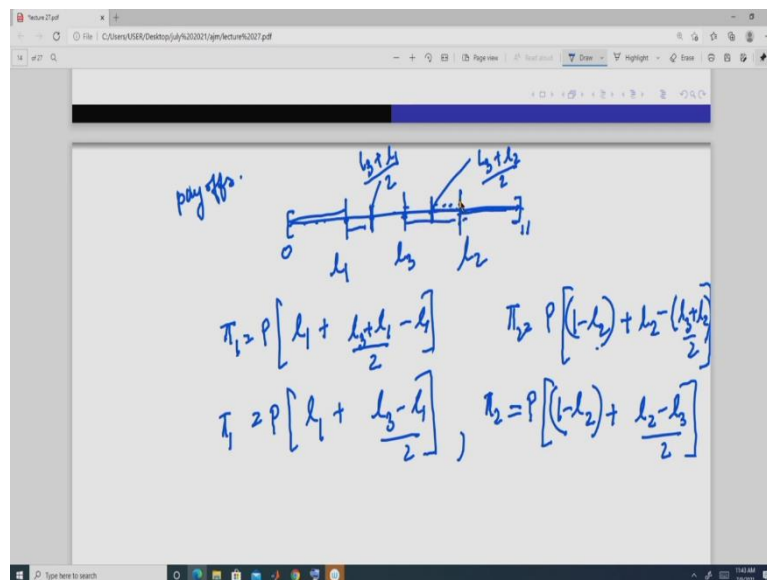 lecture 27.pdf
File | C:/Users/USER/Desktop/july%202021/ajm/lecture%2027.pdf
14 of 27 Page view Read aloud Draw Highlight Erase
payoffs.
(l₃+l₁)/2 (l₃+l₂)/2
0 l₁ l₃ l₂ 1
π₁ = P[l₁ + (l₃+l₁)/2 - l₁] π₂ = P[(1-l₂) + l₂ - (l₃+l₂)/2]
π₁ = P[l₁ + (l₃-l₁)/2], π₂ = P[(1-l₂) + (l₂-l₃)/2]
Type here to search 11:43 AM